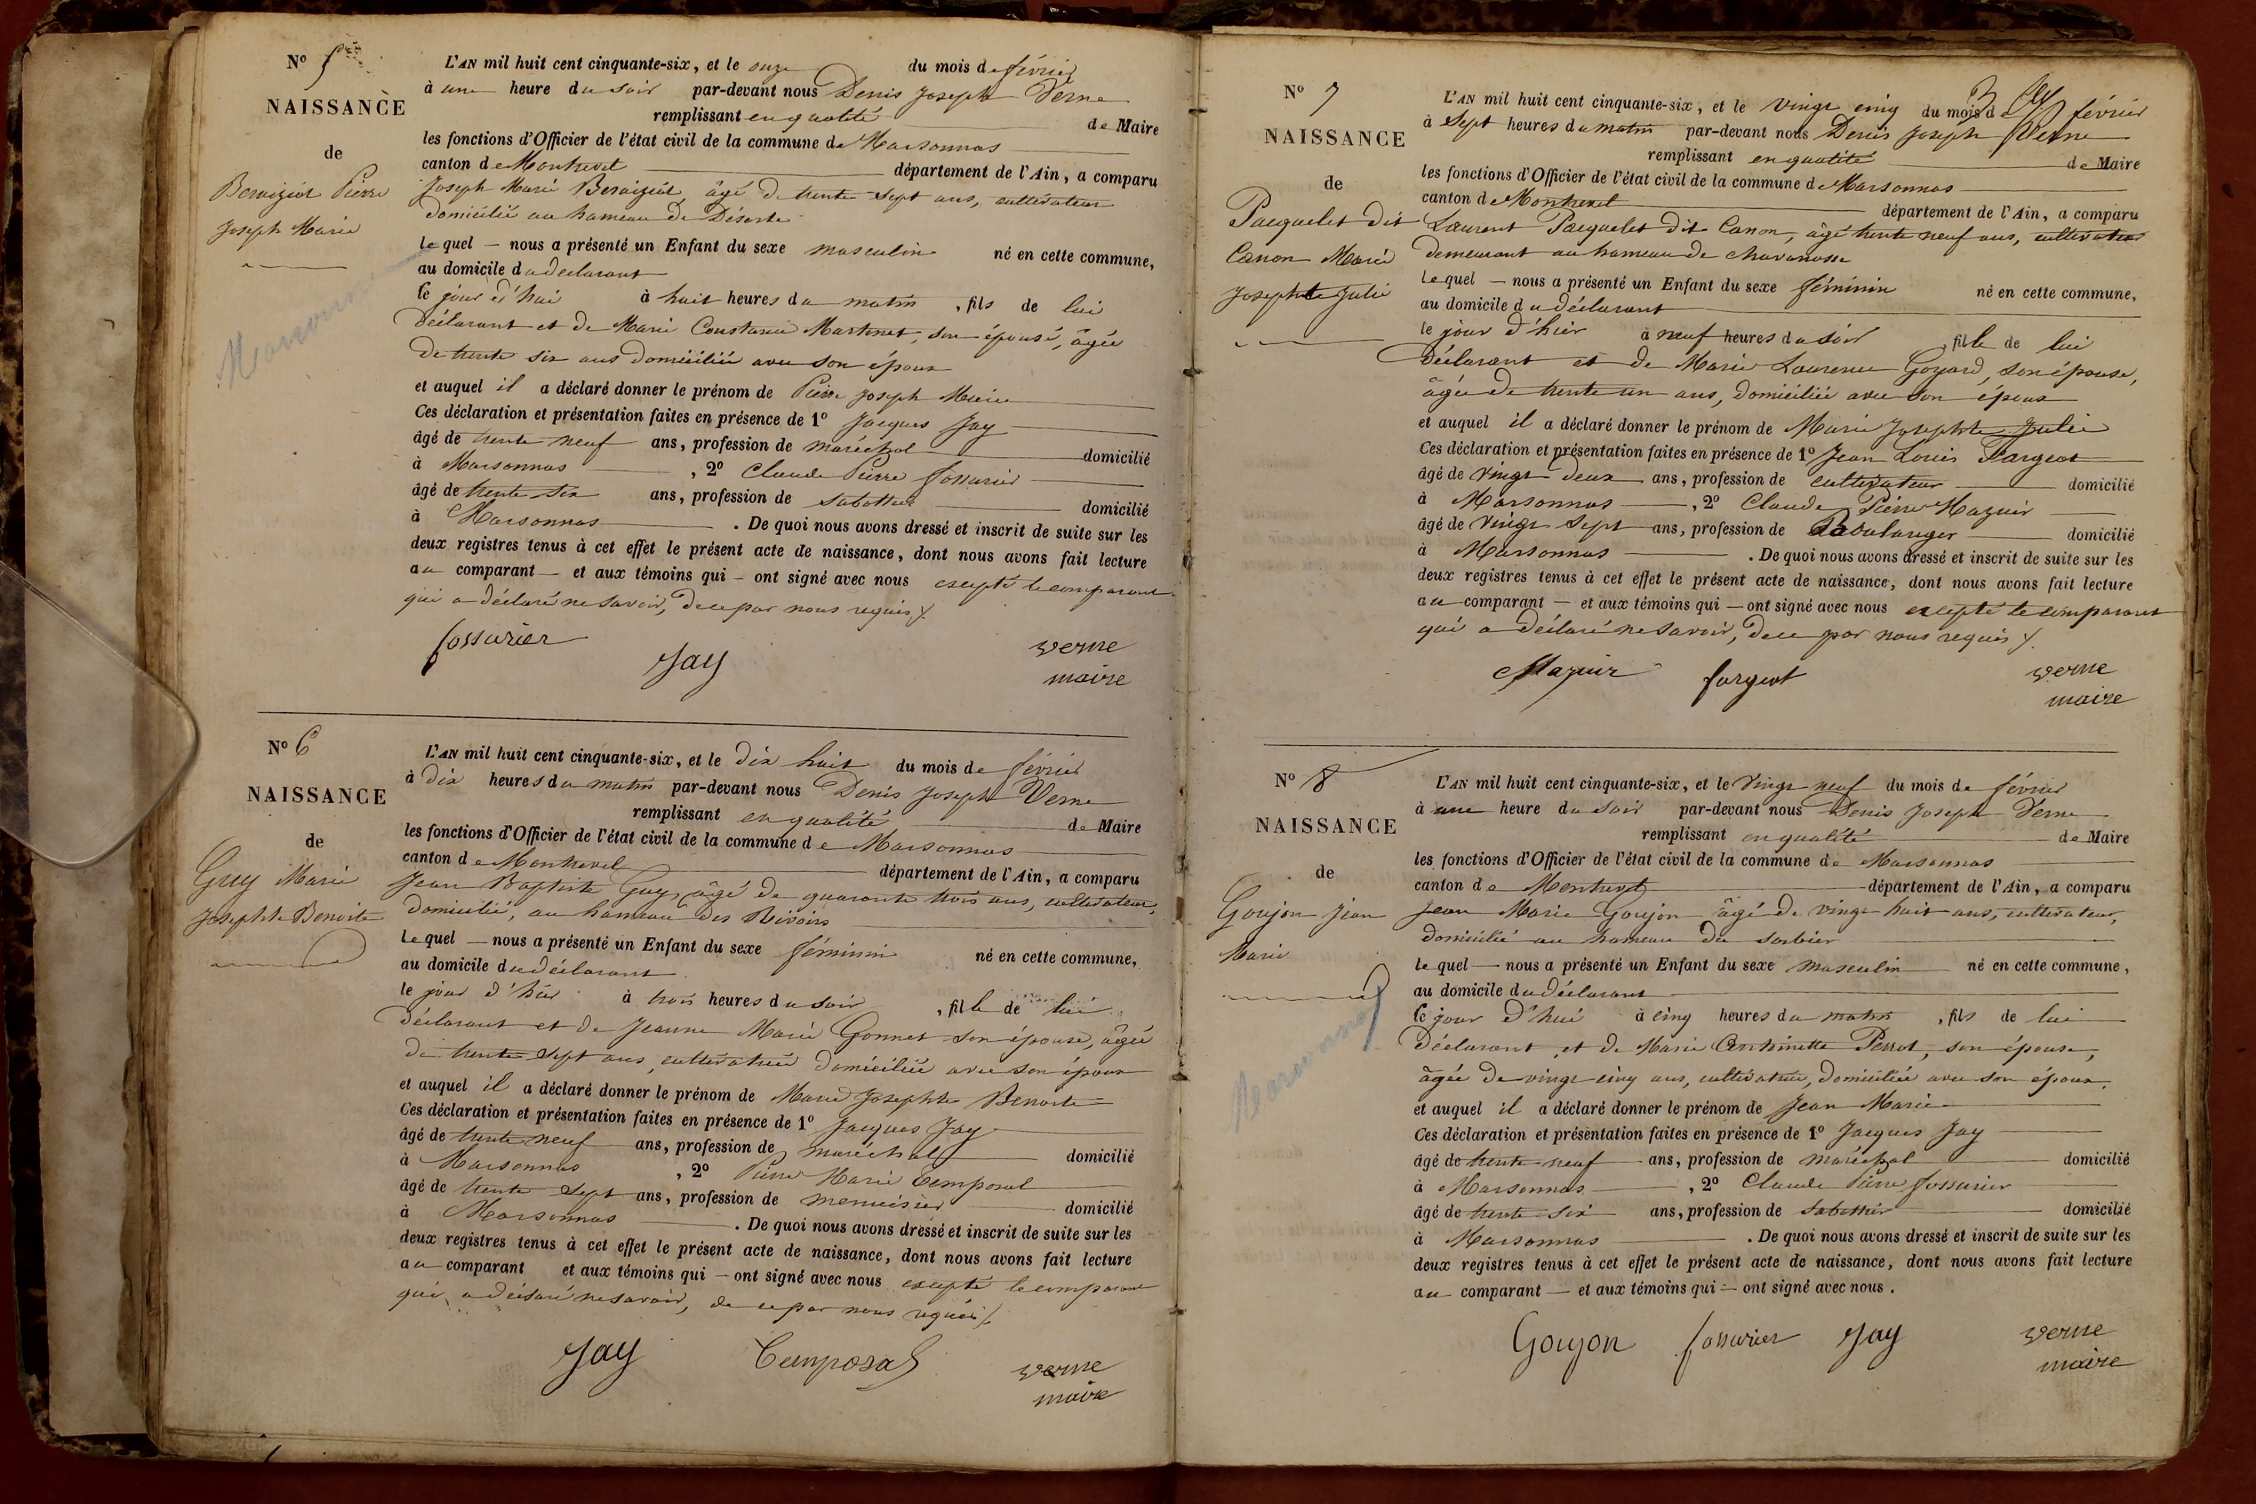 Nº 5
NAISSANCE
de
Pierre
Joseph Marie
L'AN mil huit cent cinquante-six, et le onze du mois de février
à une heure du soir par-devant nous Denis Joseph Verne
remplissant en qualité de Maire
les fonctions d'Officier de l'état civil de la commune de Marsonnas
canton de Montrevel département de l'Ain, a comparu
Joseph Marie âgé de trente sept ans, cultivateur
domicilié au hameau de Déserte
lequel nous a présenté un Enfant du sexe masculin né en cette commune,
au domicile du déclarant
le jour d'hui à huit heures du matin, fils de lui
déclarant et de Marie Constance Martinet, son épouse, âgée
de trente six ans domiciliée avec son époux
et auquel il a déclaré donner le prénom de Pierre Joseph Marie
Ces déclaration et présentation faites en présence de 1º Jacques Jay
âgé de trente neuf ans, profession de maréchal domicilié
à Marsonnas, 2º Claude Pierre Fossurier
âgé de trente six ans, profession de sabottier domicilié
à Marsonnas. De quoi nous avons dressé et inscrit de suite sur les
deux registres tenus à cet effet le présent acte de naissance, dont nous avons fait lecture
au comparant et aux témoins qui ont signé avec nous excepté le comparant
qui a déclaré ne savoir, de ce par nous requis
fossurier Jay verne
maire
Nº 6
NAISSANCE
de
Guy Marie
Josephte Benoite
L'AN mil huit cent cinquante-six, et le dix huit du mois de février
à dix heures du matin par-devant nous Denis Joseph Verne
remplissant en qualité de Maire
les fonctions d'Officier de l'état civil de la commune de Marsonnas
canton de Montrevel département de l'Ain, a comparu
Jean Baptiste Guy, âgé de quarante trois ans, cultivateur,
domicilié, au hameau des Rivoirs
lequel nous a présenté un Enfant du sexe féminin né en cette commune,
au domicile du déclarant
le jour d'hier à trois heures du soir, fille de lui
déclarant et de Jeanne Marie Gonnet son épouse, âgée
de trente sept ans, cultivatrice domiciliée avec son époux
et auquel il a déclaré donner le prénom de Marie Josephte Benoite
Ces déclaration et présentation faites en présence de 1º Jacques Jay
âgé de trente neuf ans, profession de maréchal domicilié
à Marsonnas, 2º Pierre Marie Temporal
âgé de trente sept ans, profession de menuisier domicilié
à Marsonnas. De quoi nous avons dressé et inscrit de suite sur les
deux registres tenus à cet effet le présent acte de naissance, dont nous avons fait lecture
au comparant et aux témoins qui ont signé avec nous excepté le comparant
qui a déclaré ne savoir, de ce par nous requis
Jay Temporal verne
maire
Nº 7
NAISSANCE
de
Pacquelet dit
Canon Marie
Josephte Julie
L'AN mil huit cent cinquante-six, et le vingt cinq du mois de février
à sept heures du matin par-devant nous Denis Joseph Verne
remplissant en qualité de Maire
les fonctions d'Officier de l'état civil de la commune de Marsonnas
canton de Montrevel département de l'Ain, a comparu
Laurent Pacquelet dit Canon, âgé trente neuf ans, cultivateur
demeurant au hameau de chavanosse
lequel nous a présenté un Enfant du sexe féminin né en cette commune,
au domicile du déclarant
le jour d'hier à neuf heures du soir, fille de lui
déclarant et de Marie Laurence Goyard, son épouse,
âgée de trente un ans, domiciliée avec son époux
et auquel il a déclaré donner le prénom de Marie Josephte Julie
Ces déclaration et présentation faites en présence de 1º Jean Louis Fargeot
âgé de vingt deux ans, profession de cultivateur domicilié
à Marsonnas, 2º Claude Pierre Mazuir
âgé de vingt sept ans, profession de boulanger domicilié
à Marsonnas. De quoi nous avons dressé et inscrit de suite sur les
deux registres tenus à cet effet le présent acte de naissance, dont nous avons fait lecture
au comparant et aux témoins qui ont signé avec nous excepté le comparant
qui a déclaré ne savoir, de ce par nous requis
Mazuir fargeot verne
maire
Nº 8
NAISSANCE
de
Goujon Jean
Marie
L'AN mil huit cent cinquante-six, et le vingt neuf du mois de février
à une heure du soir par-devant nous Denis Joseph Verne
remplissant en qualité de Maire
les fonctions d'Officier de l'état civil de la commune de Marsonnas
canton de Montrevel département de l'Ain, a comparu
Jean Marie Goujon âgé de vingt huit ans, cultivateur,
domicilié au hameau du Sorbier
lequel nous a présenté un Enfant du sexe masculin né en cette commune,
au domicile du déclarant
le jour d'hui à cinq heures du matin, fils de lui
déclarant, et de Marie Antoinette Perrot, son épouse,
âgée de vingt cinq ans, cultivatrice, domiciliée avec son époux.
et auquel il a déclaré donner le prénom de Jean Marie
Ces déclaration et présentation faites en présence de 1º Jacques Jay
âgé de trente neuf ans, profession de maréchal domicilié
à Marsonnas, 2º Claude Pierre Fossurier
âgé de trente six ans, profession de Sabottier domicilié
à Marsonnas. De quoi nous avons dressé et inscrit de suite sur les
deux registres tenus à cet effet le présent acte de naissance, dont nous avons fait lecture
au comparant et aux témoins qui ont signé avec nous.
Goujon fossurier Jay verne
maire